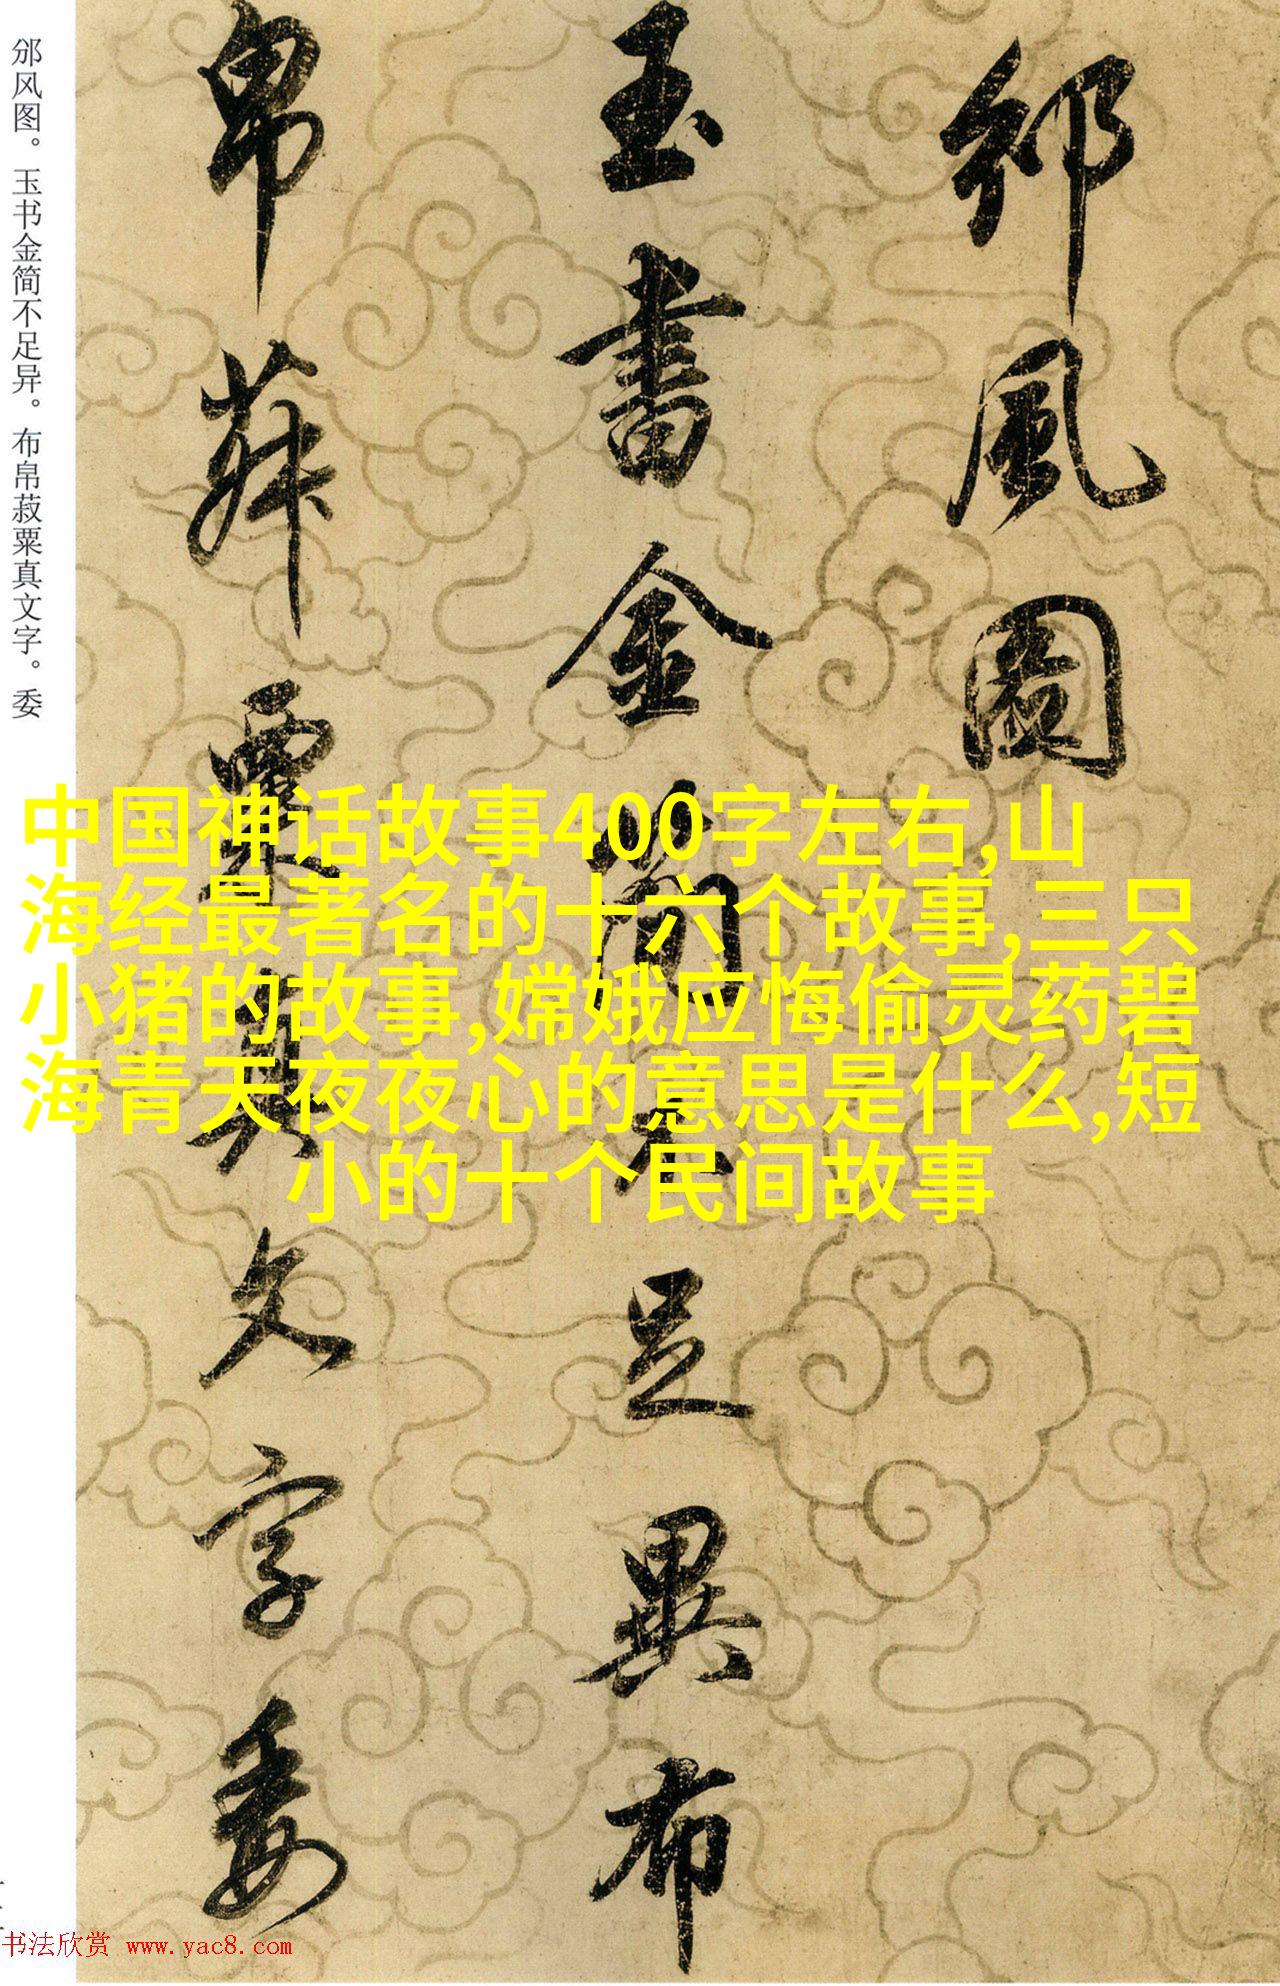 邠風圖
玉書金簡不足異布
帛菽粟真文字委
邠风图。玉书金简不足异。布帛菽粟真文字。委
中国神话故事400字左右,山
海经最著名的十六个故事,三只
小猪的故事,嫦娥应悔偷灵药碧
海青天夜夜心的意思是什么,短
小的十个民间故事
书法欣赏 www.yac8.com